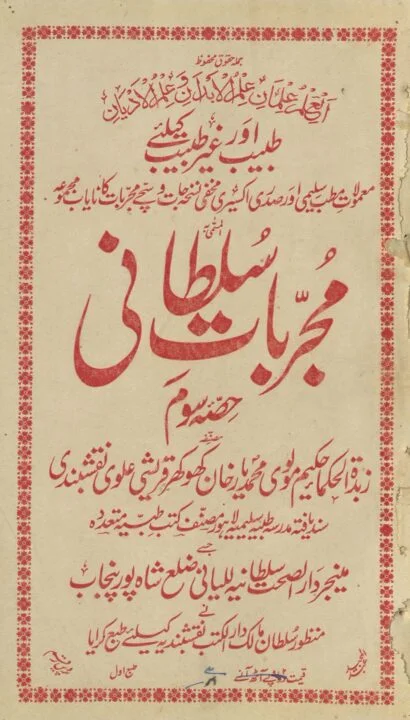 جملہ حقوق محفوظ
العلم علمان علم الابدان و علم الادیان
طبیب اور غیر طبیب کیلئے
معمولات مطب سلیمی اور صدری اکسیری مخفی نسخہ جات و سچے مجربات کا نایاب مجموعہ
المسمّٰی بہ
مجرّبات سُلطانی
حِصّہ سوم
مصنفہ
زبدۃ الحکما حکیم مولوی محمد یار خان کھوکھر قریشی علوی نقشبندی
سند یافتہ مدرسہ طبیہ سلیمیہ لاہور مصنف کتب طبیہ متعددہ
جسے
مینجر دار الصحت سلطانیہ للیانی ضلع شاہ پور پنجاب
نے
منظور سُلطان مالک دار الکتب نقشبندیہ کیلئے طبع کرایا
طبع اول
قیمت روپے آٹھ آنے